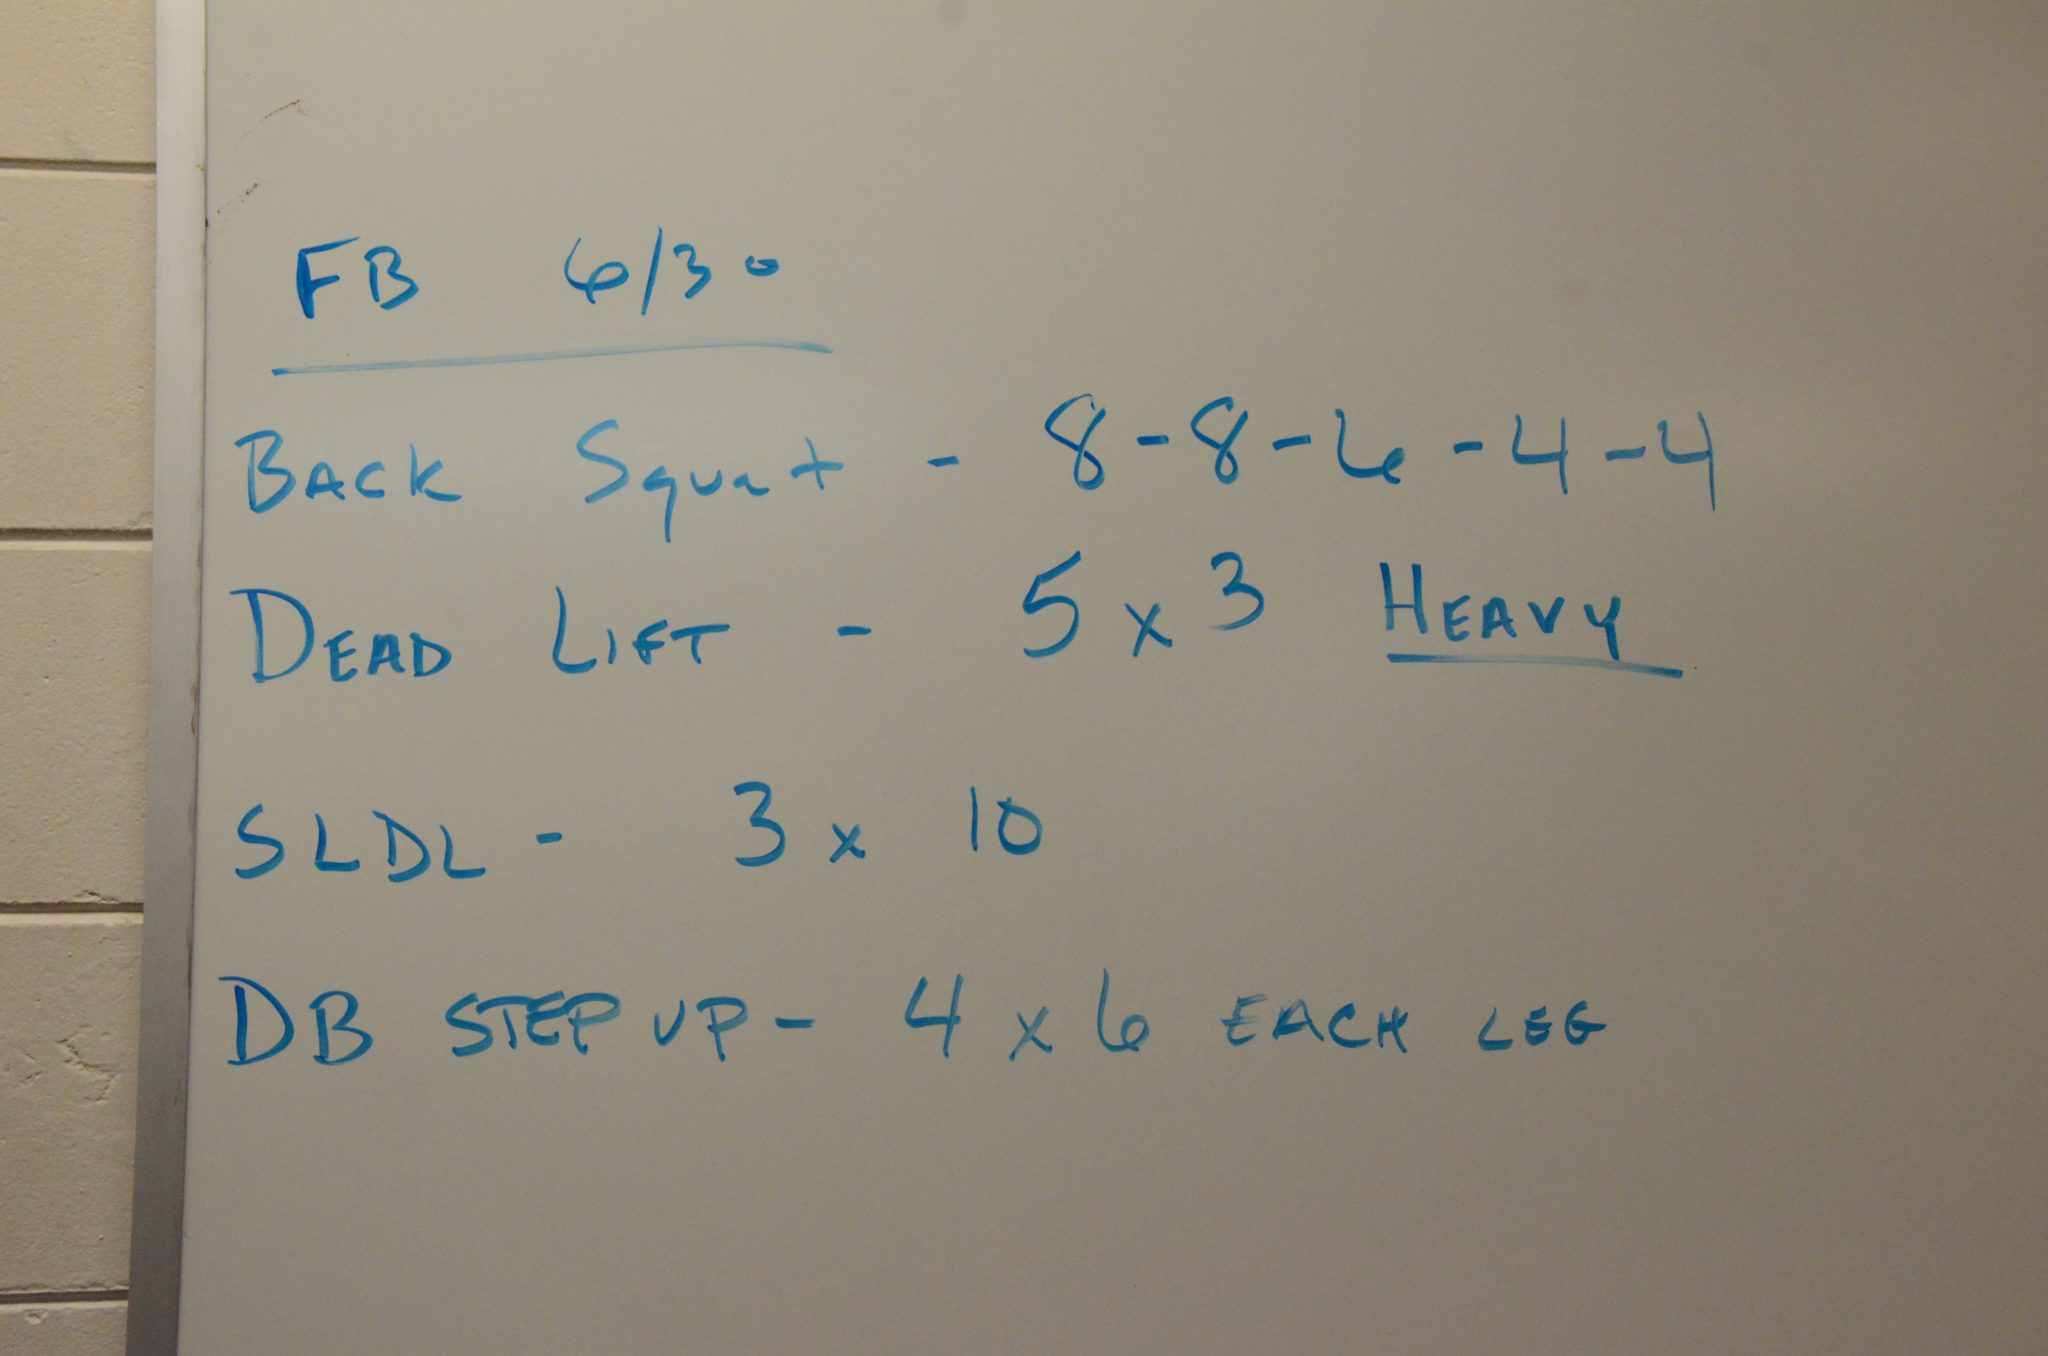 FB 6/30
BACK Squat - 8-8-6-4-4
DEAD LIFT - 5 x 3 HEAVY
SLDL - 3 x 10
DB STEP UP - 4 x 6 EACH LEG